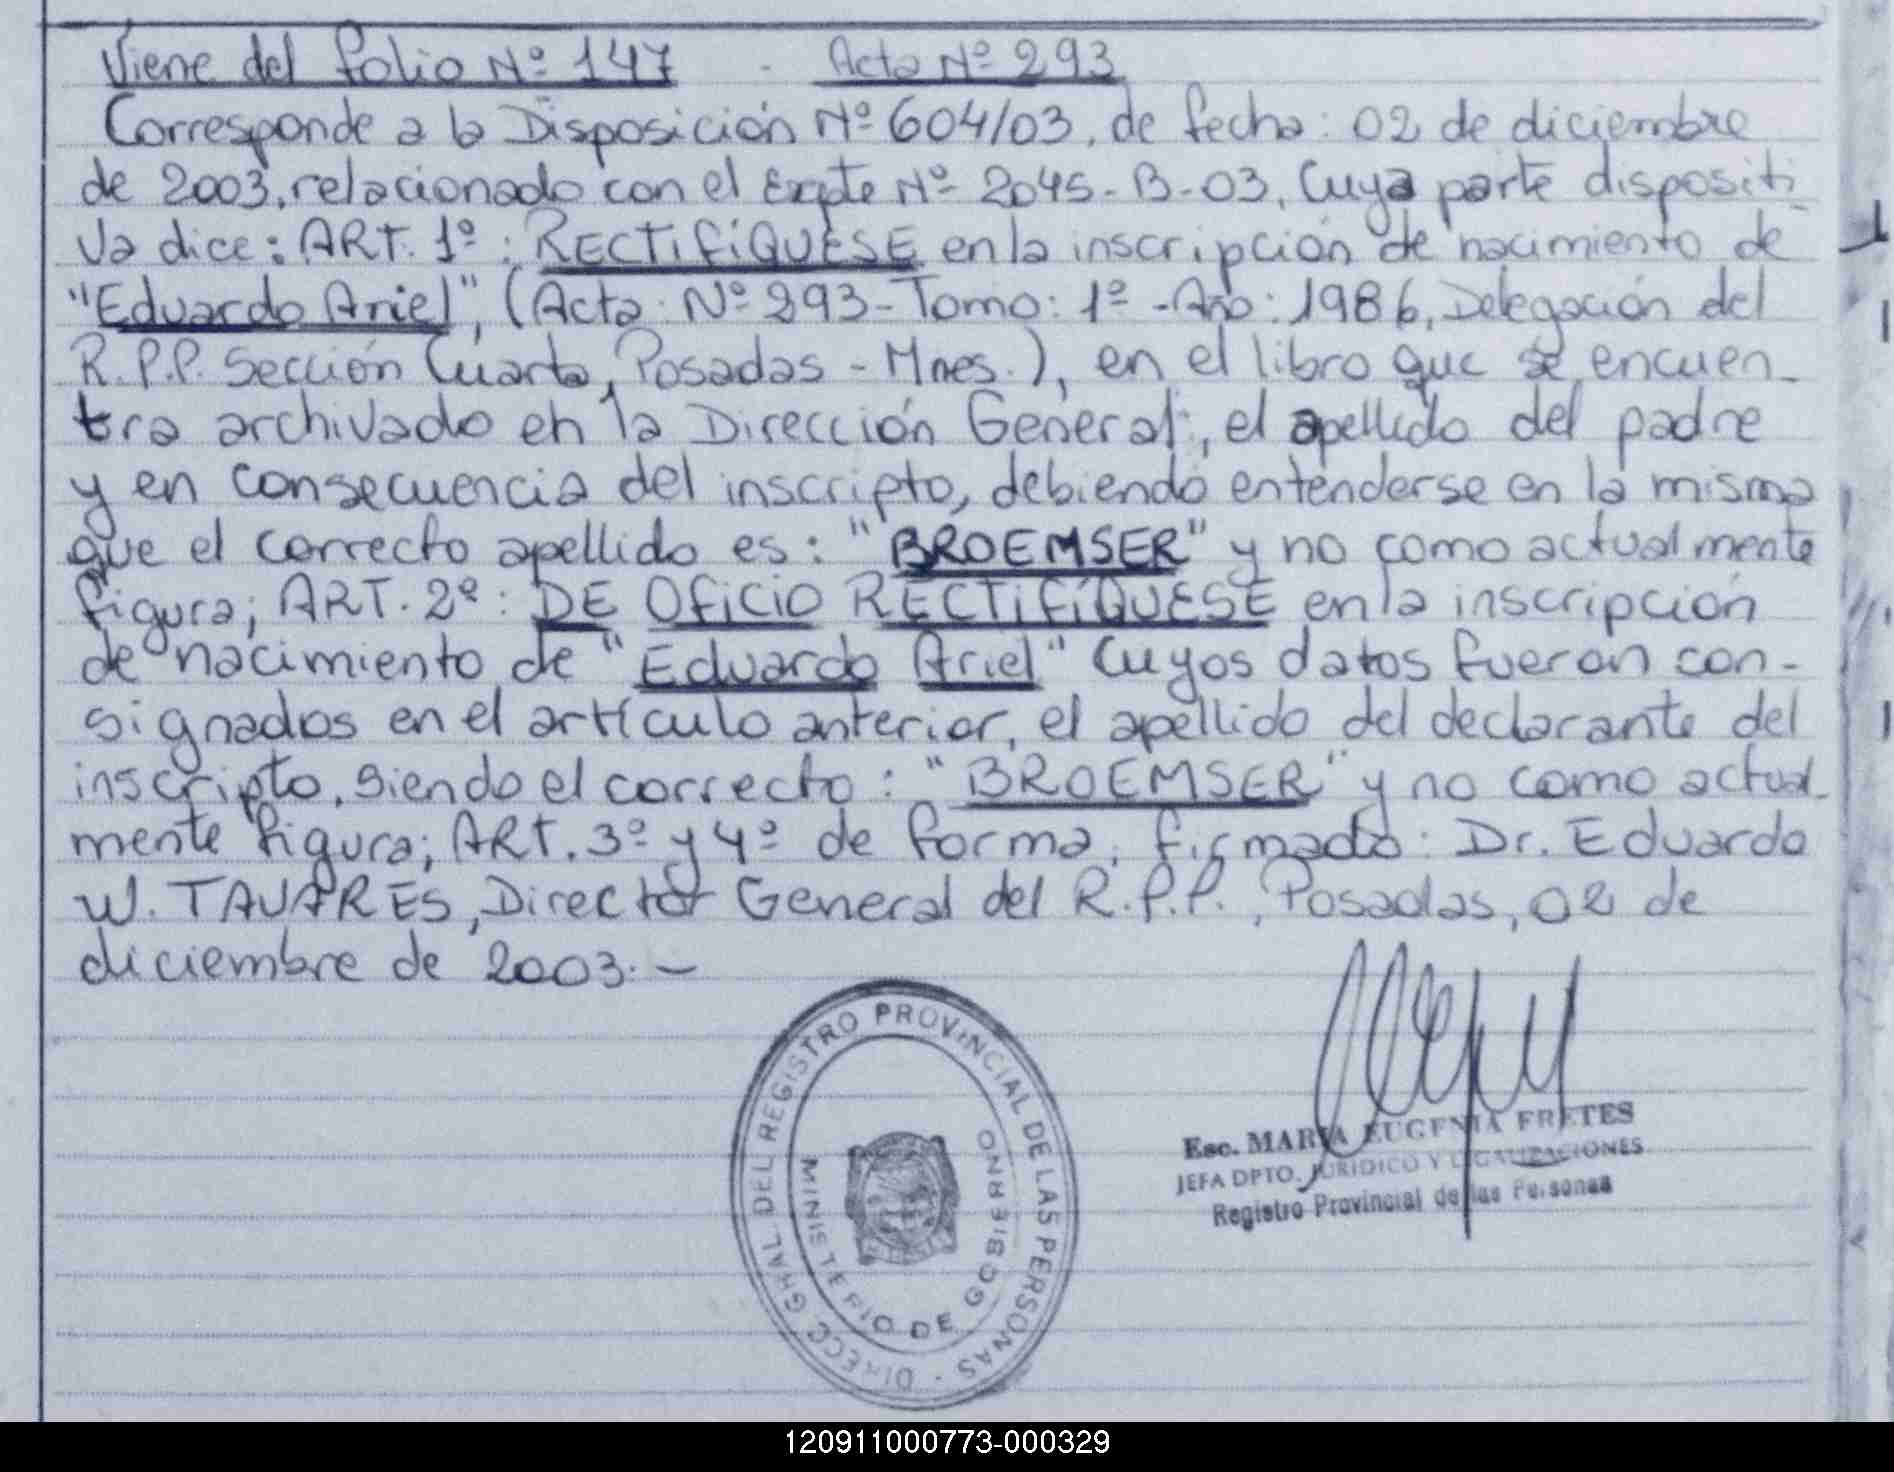 Viene del folio Nº 147 - Acta Nº 293
Corresponde a la Disposición Nº 604/03, de fecha: 02 de diciembre
de 2003, relacionado con el Expte Nº 2045-B-03, Cuya parte dispositi
va dice: ART. 1º: RECTIFÍQUESE en la inscripción de nacimiento de
"Eduardo Ariel", (Acta: Nº 293-Tomo: 1º-Año: 1986, Delegación del
R.P.P. Sección Cuarta, Posadas - Mnes.), en el libro que se encuen-
tra archivado en la Dirección General, el apellido del padre
y en consecuencia del inscripto, debiendo entenderse en la misma
que el correcto apellido es: "BROEMSER" y no como actualmente
figura; ART. 2º: DE OFICIO RECTIFÍQUESE en la inscripción
de nacimiento de "Eduardo Ariel" Cuyos datos fueron con-
signados en el artículo anterior, el apellido del declarante del
inscripto, siendo el correcto: "BROEMSER" y no como actual-
mente figura; ART. 3º y 4º de forma, firmado: Dr. Eduardo
W. TAVARES, Director General del R.P.P., Posadas, 02 de
diciembre de 2003.-
DIRECC GRAL DEL REGISTRO PROVINCIAL DE LAS PERSONAS -
MINISTERIO DE GOBIERNO
Esc. MARIA EUGENIA FRETES
JEFA DPTO. JURIDICO Y LEGALIZACIONES
Registro Provincial de las Personas
120911000773-000329